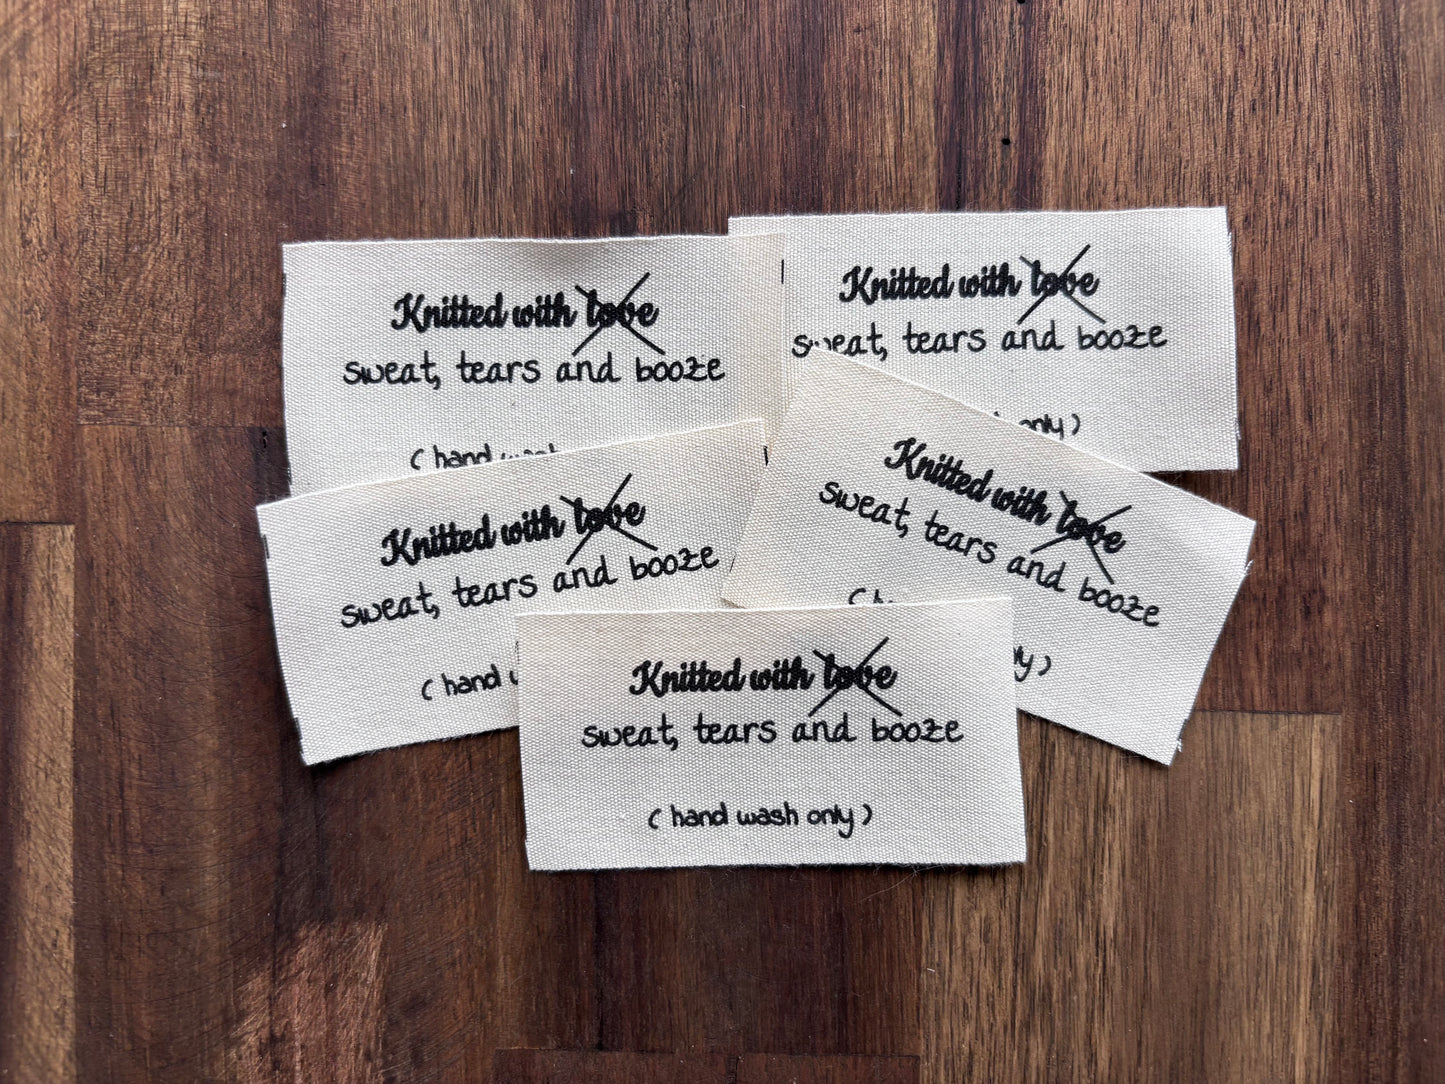 Knitted with love
sweat, tears and booze
( hand
Knitted with love
sweat, tears and booze
only )
Knitted with love
sweat, tears and booze
( hand
Knitted with love
sweat, tears and booze
Knitted with love
sweat, tears and booze
( hand wash only )